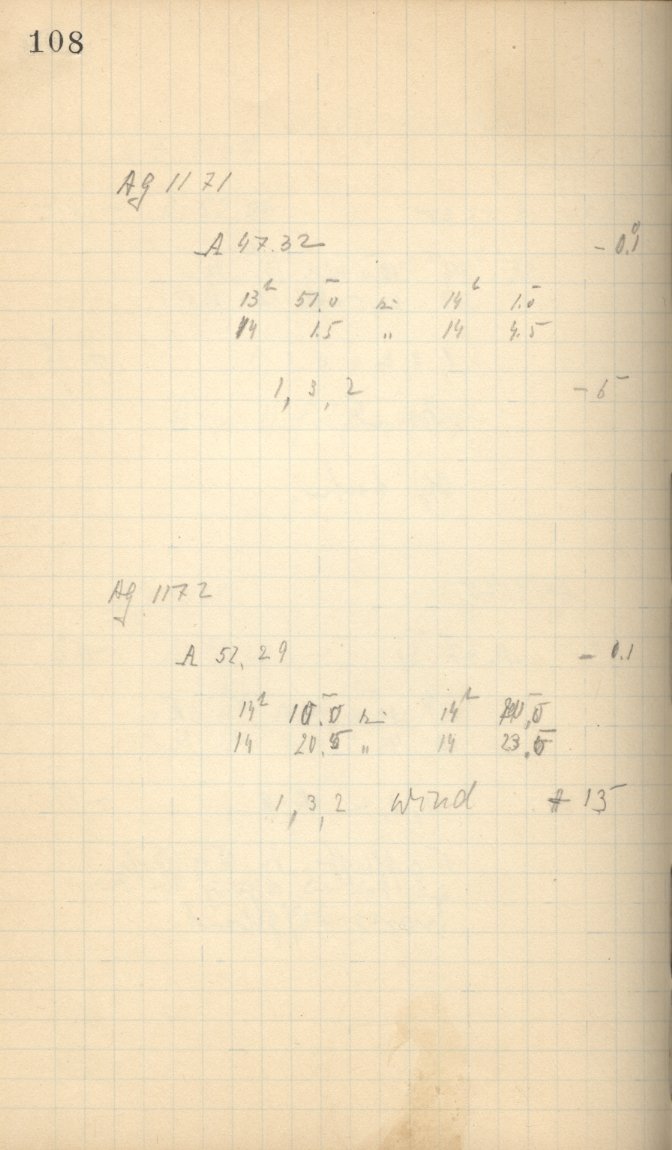 108
Ag 1171
A 47.32 - 0.1
13h 51.0 bis 14h 1.0
14 1.5 " 14 4.5
1, 3, 2 - 6
Ag 1172
A 52.29 - 0.1
14h 10.0 bis 14h 20.0
14 20.5 " 14 23.5
1, 3, 2 Wind + 15